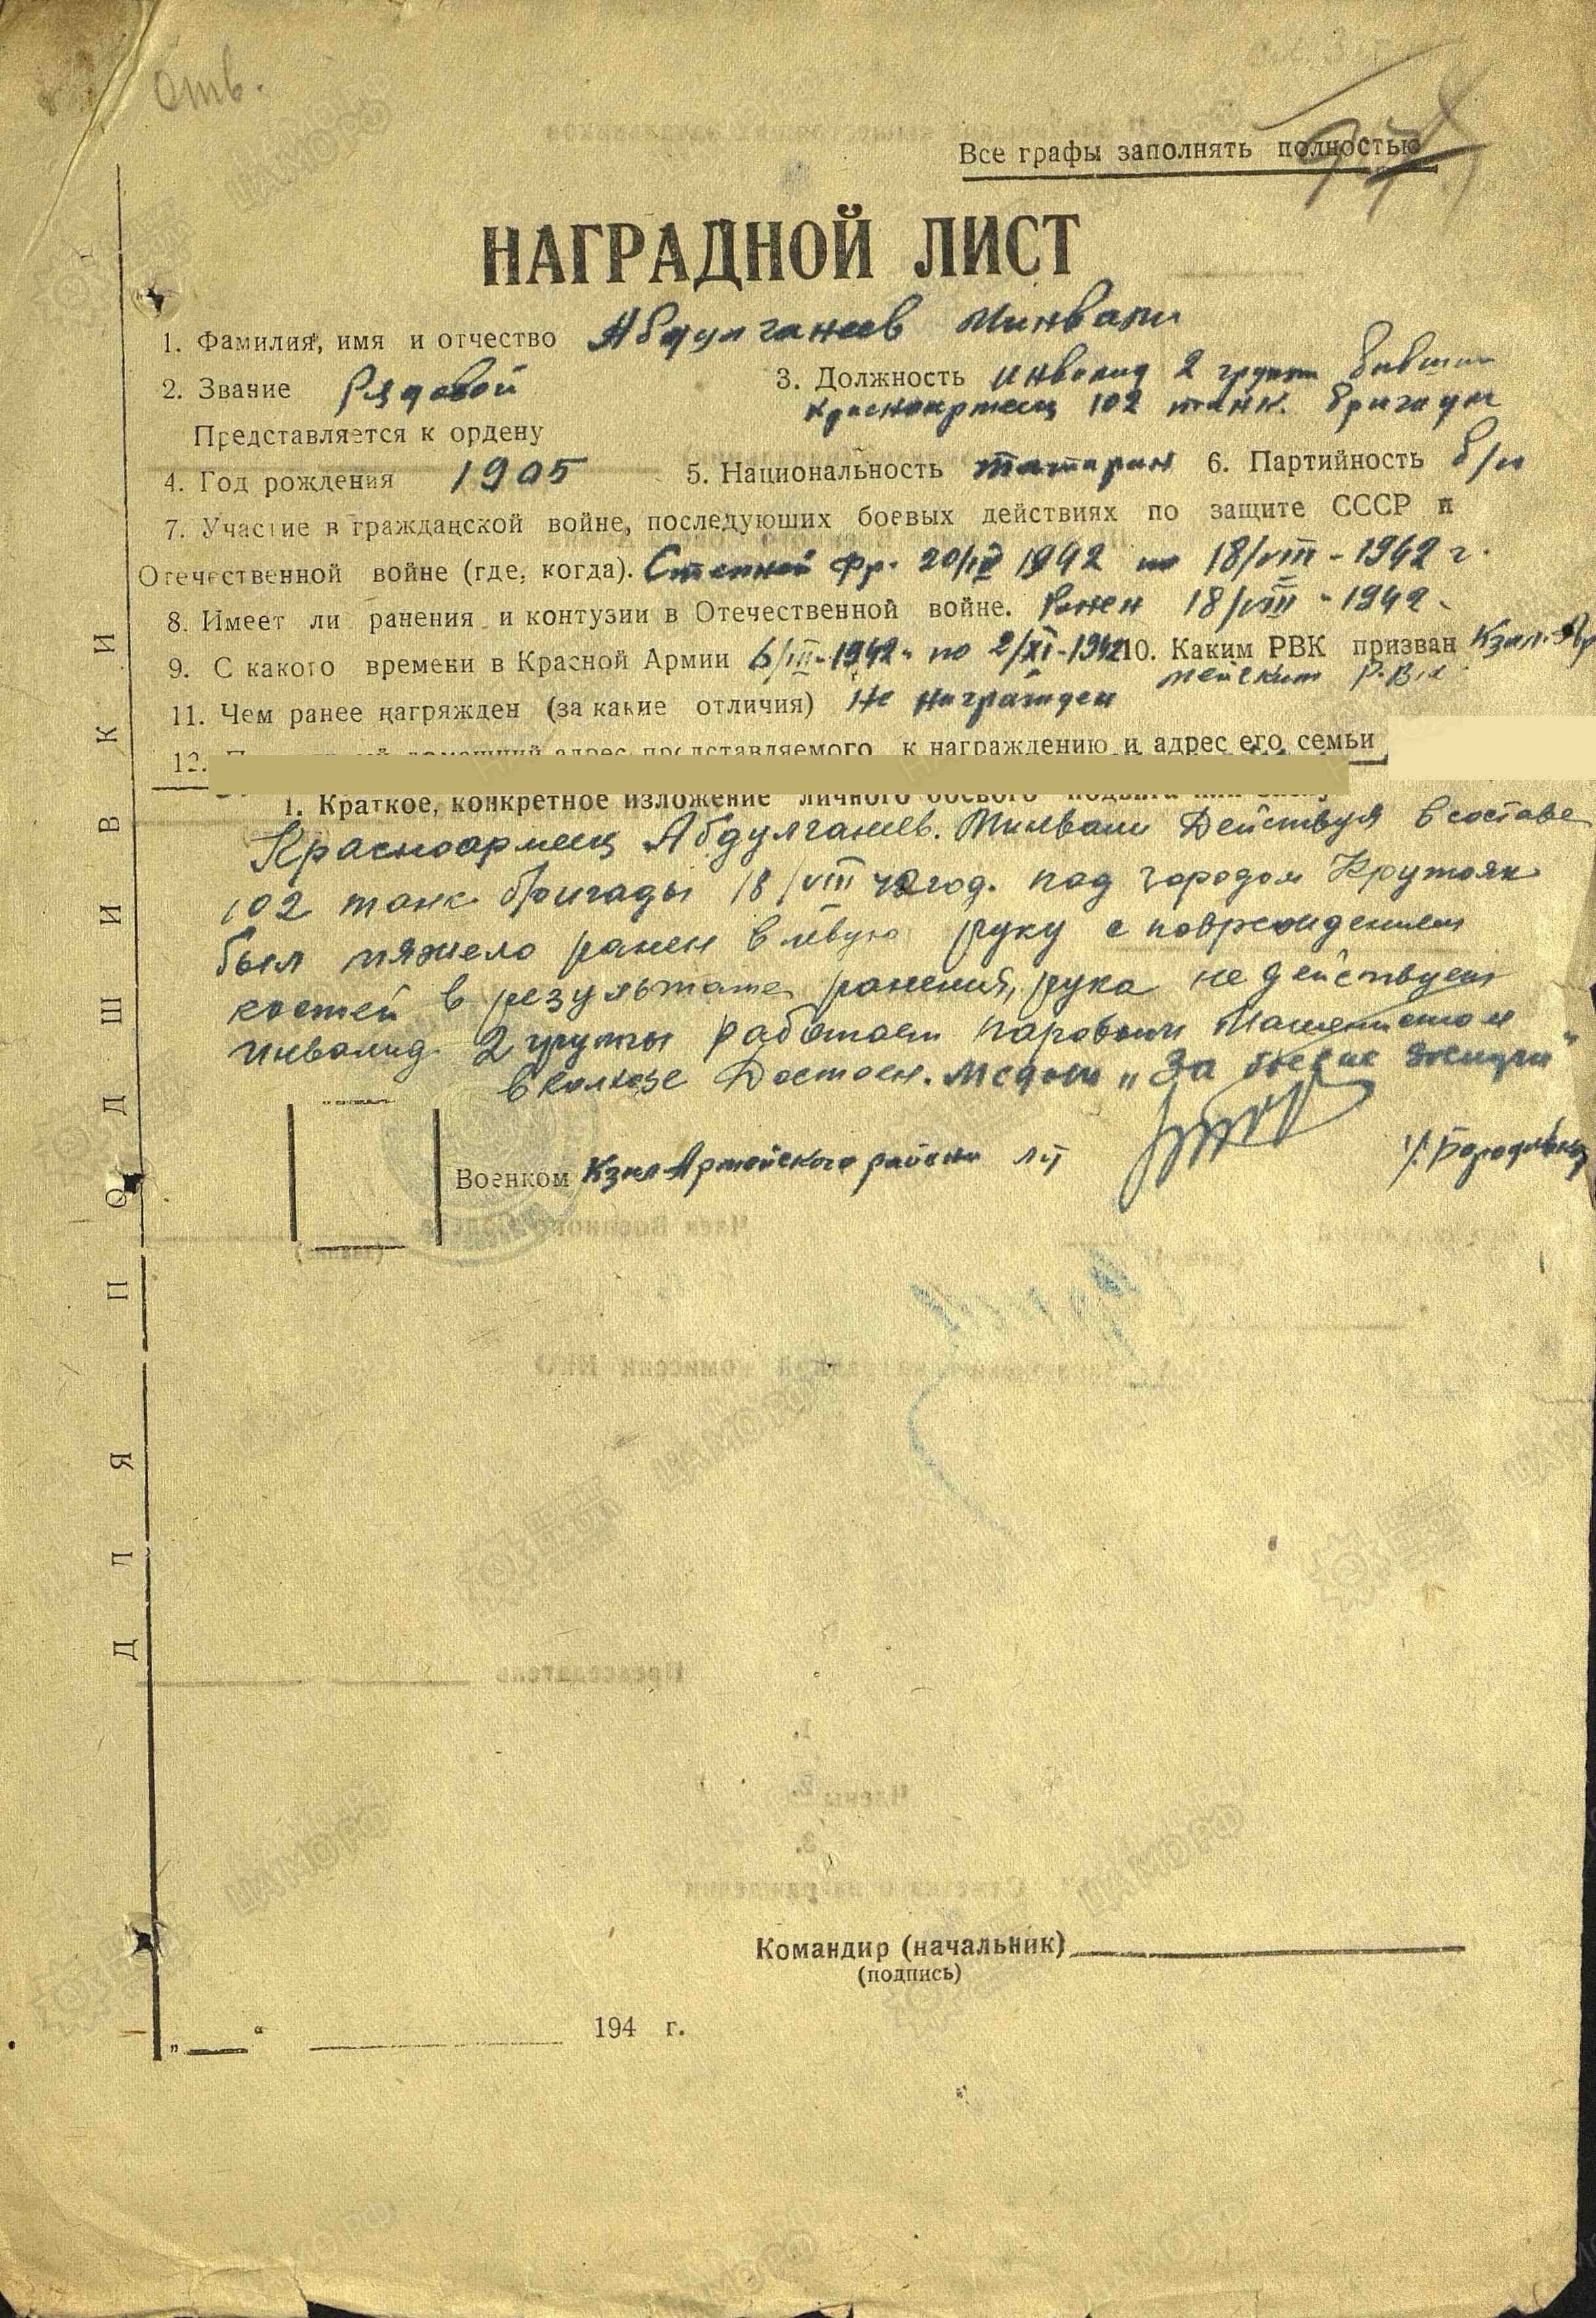 Отв.
Все графы заполнять полностью
НАГРАДНОЙ ЛИСТ
1. Фамилия, имя и отчество Абдулганеев Минвали
2. Звание Рядовой
3. Должность инвалид 2 группы бывший
красноармеец 102 танк. бригады
Представляется к ордену
4. Год рождения 1905 5. Национальность татарин 6. Партийность б/п
7. Участие в гражданской войне, последующих боевых действиях по защите СССР и
Отечественной войне (где, когда). Степной фр. 20/IV 1942 по 18/VIII - 1942 г.
8. Имеет ли ранения и контузии в Отечественной войне. Ранен 18/VIII - 1942
9. С какого времени в Красной Армии 6/III-1942 по 2/XI-1942 10. Каким РВК призван Кзыл-Ар
мейским Р.В.К
11. Чем ранее нагряжден (за какие отличия) Не награжден
12. домашний адрес представляемого к награждению и адрес его семьи
1. Краткое, конкретное изложение личного боевого
Красноармеец Абдулганеев. Минвали Действуя в составе
102 танк бригады 18/VIII 42 год. под городом Крутояк
был тяжело ранен в левую руку с повреждением
костей в результате ранения, рука не действует
инвалид 2 группы работает паровым машинистом
в колхозе Достоен. медали „За боевые
Военком Кзыл Армейского района
ДЛЯ ПОДШИВКИ
Командир (начальник)
(подпись)
„ “ 194 г.